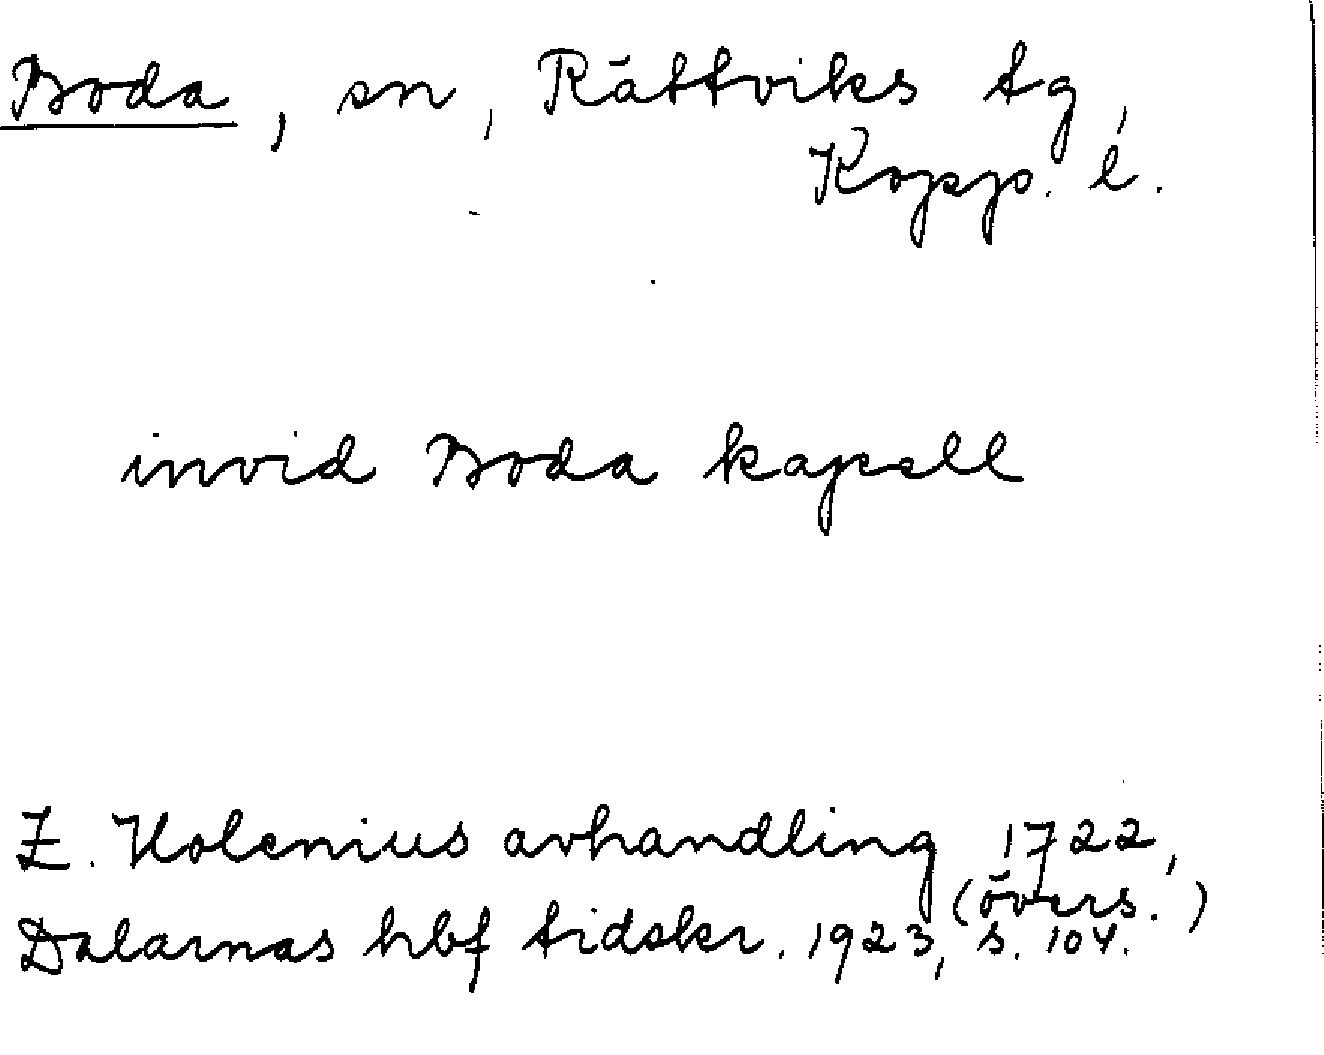 Boda, sn, Rättviks tg,
Kopp. l.
invid Boda kapell
Z. Holenius avhandling 1722,
(övers.)
Dalarnas hbf tidskr. 1923, s. 104.